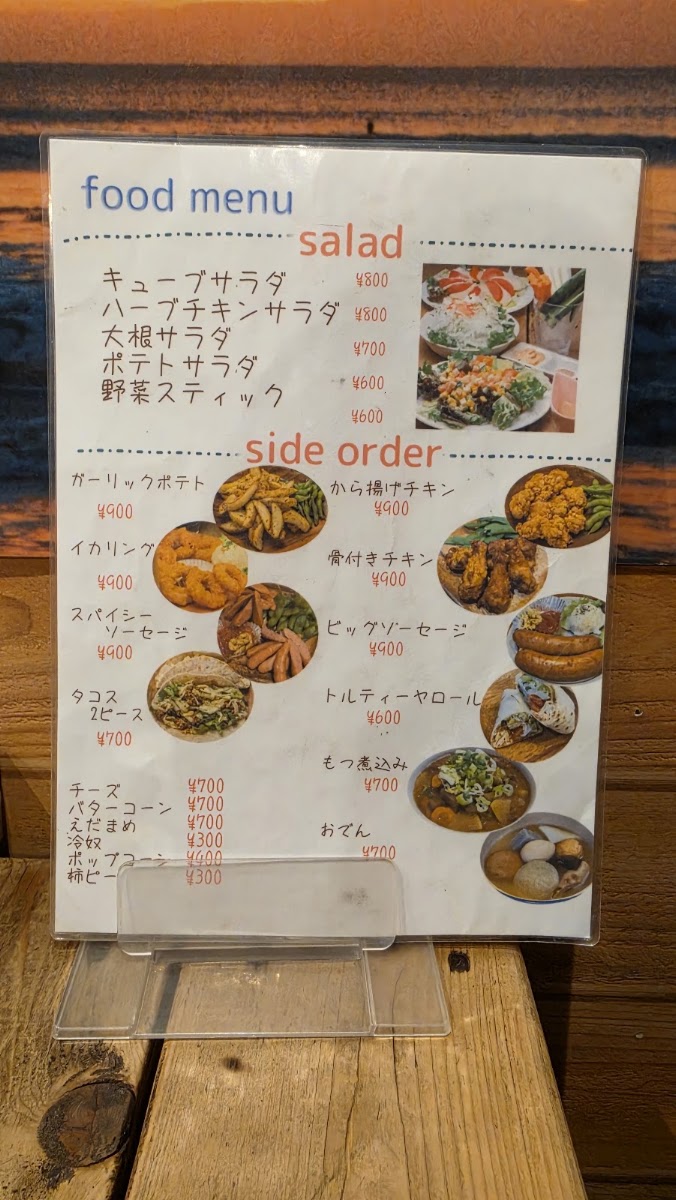 food menu
salad
キューブサラダ ¥800
ハーブチキンサラダ ¥800
大根サラダ ¥700
ポテトサラダ ¥600
野菜スティック ¥600
side order
ガーリックポテト
¥900
から揚げチキン
¥900
イカリング
¥900
骨付きチキン
¥900
スパイシー
ソーセージ
¥900
ビッグソーセージ
¥900
タコス
2ピース
¥700
トルティーヤロール
¥600
もつ煮込み
¥700
おでん
¥700
チーズ ¥700
バターコーン ¥700
えだまめ ¥700
冷奴 ¥300
ポップコーン ¥400
柿ピー ¥300